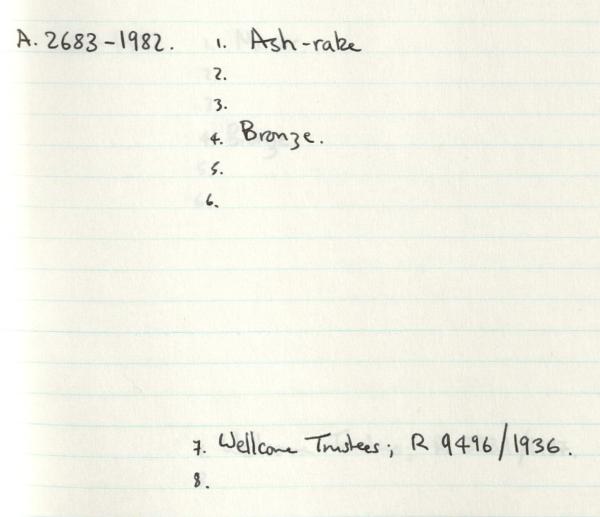 A. 2683-1982. 1. Ash-rake
2.
3.
4. Bronze.
5.
6.
7. Wellcome Trustees; R 9496/1936.
8.